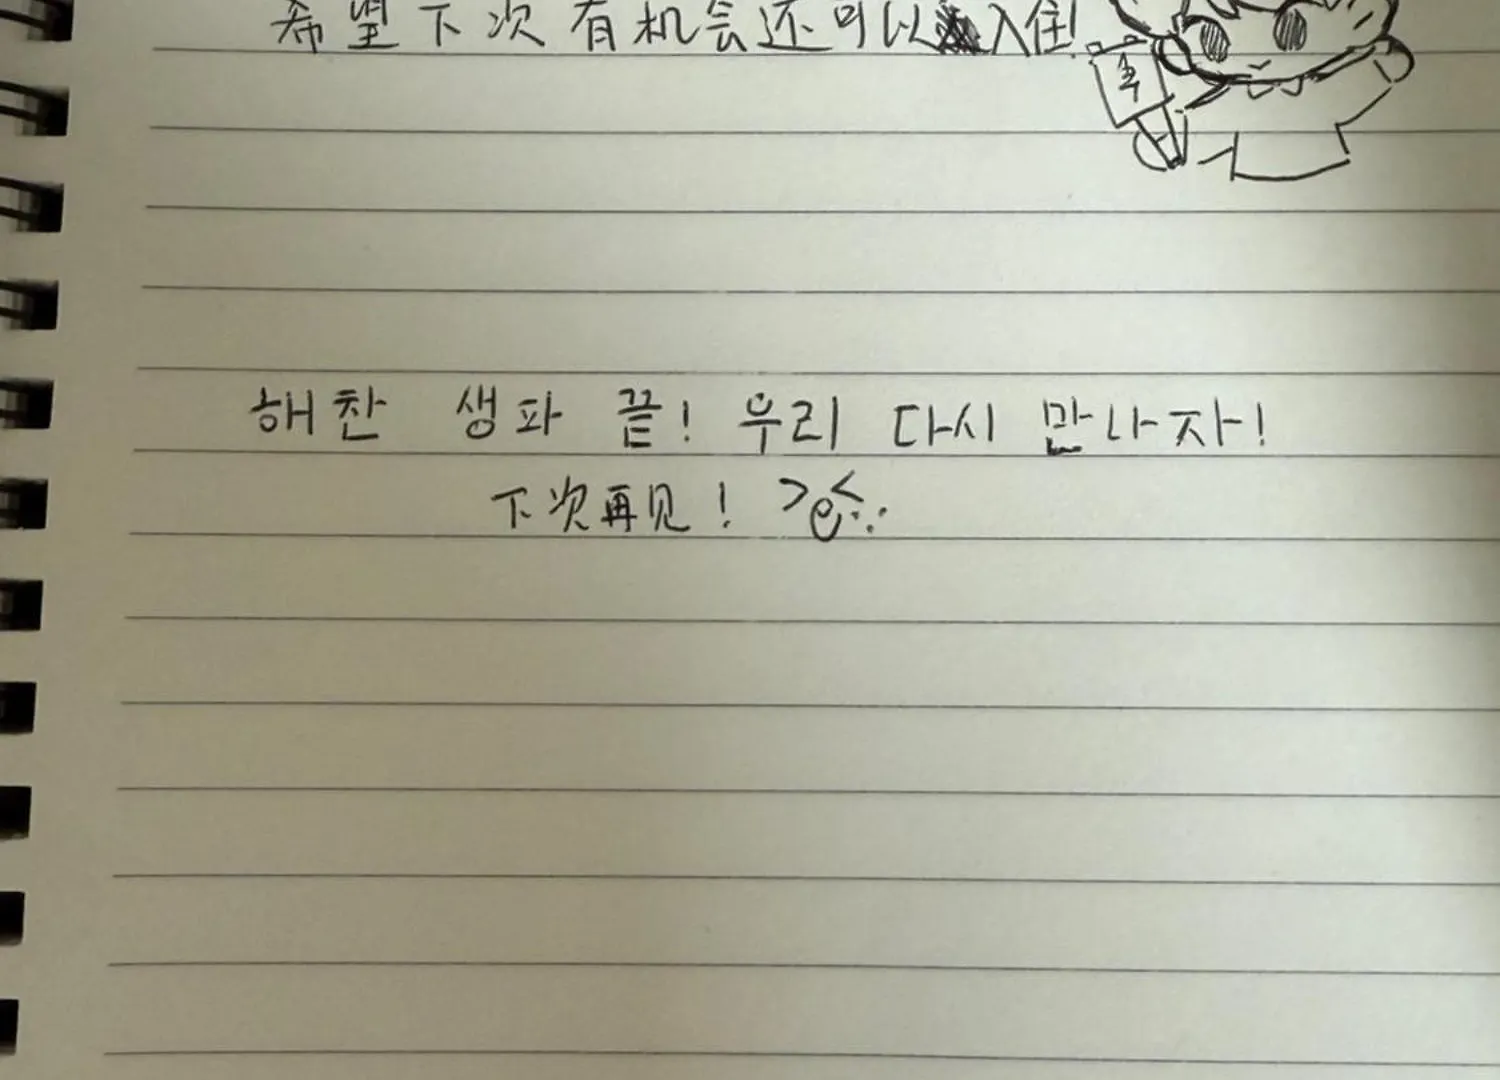 希望下次有机会还可以入住!
해찬 생파 끝! 우리 다시 만나자!
下次再见!